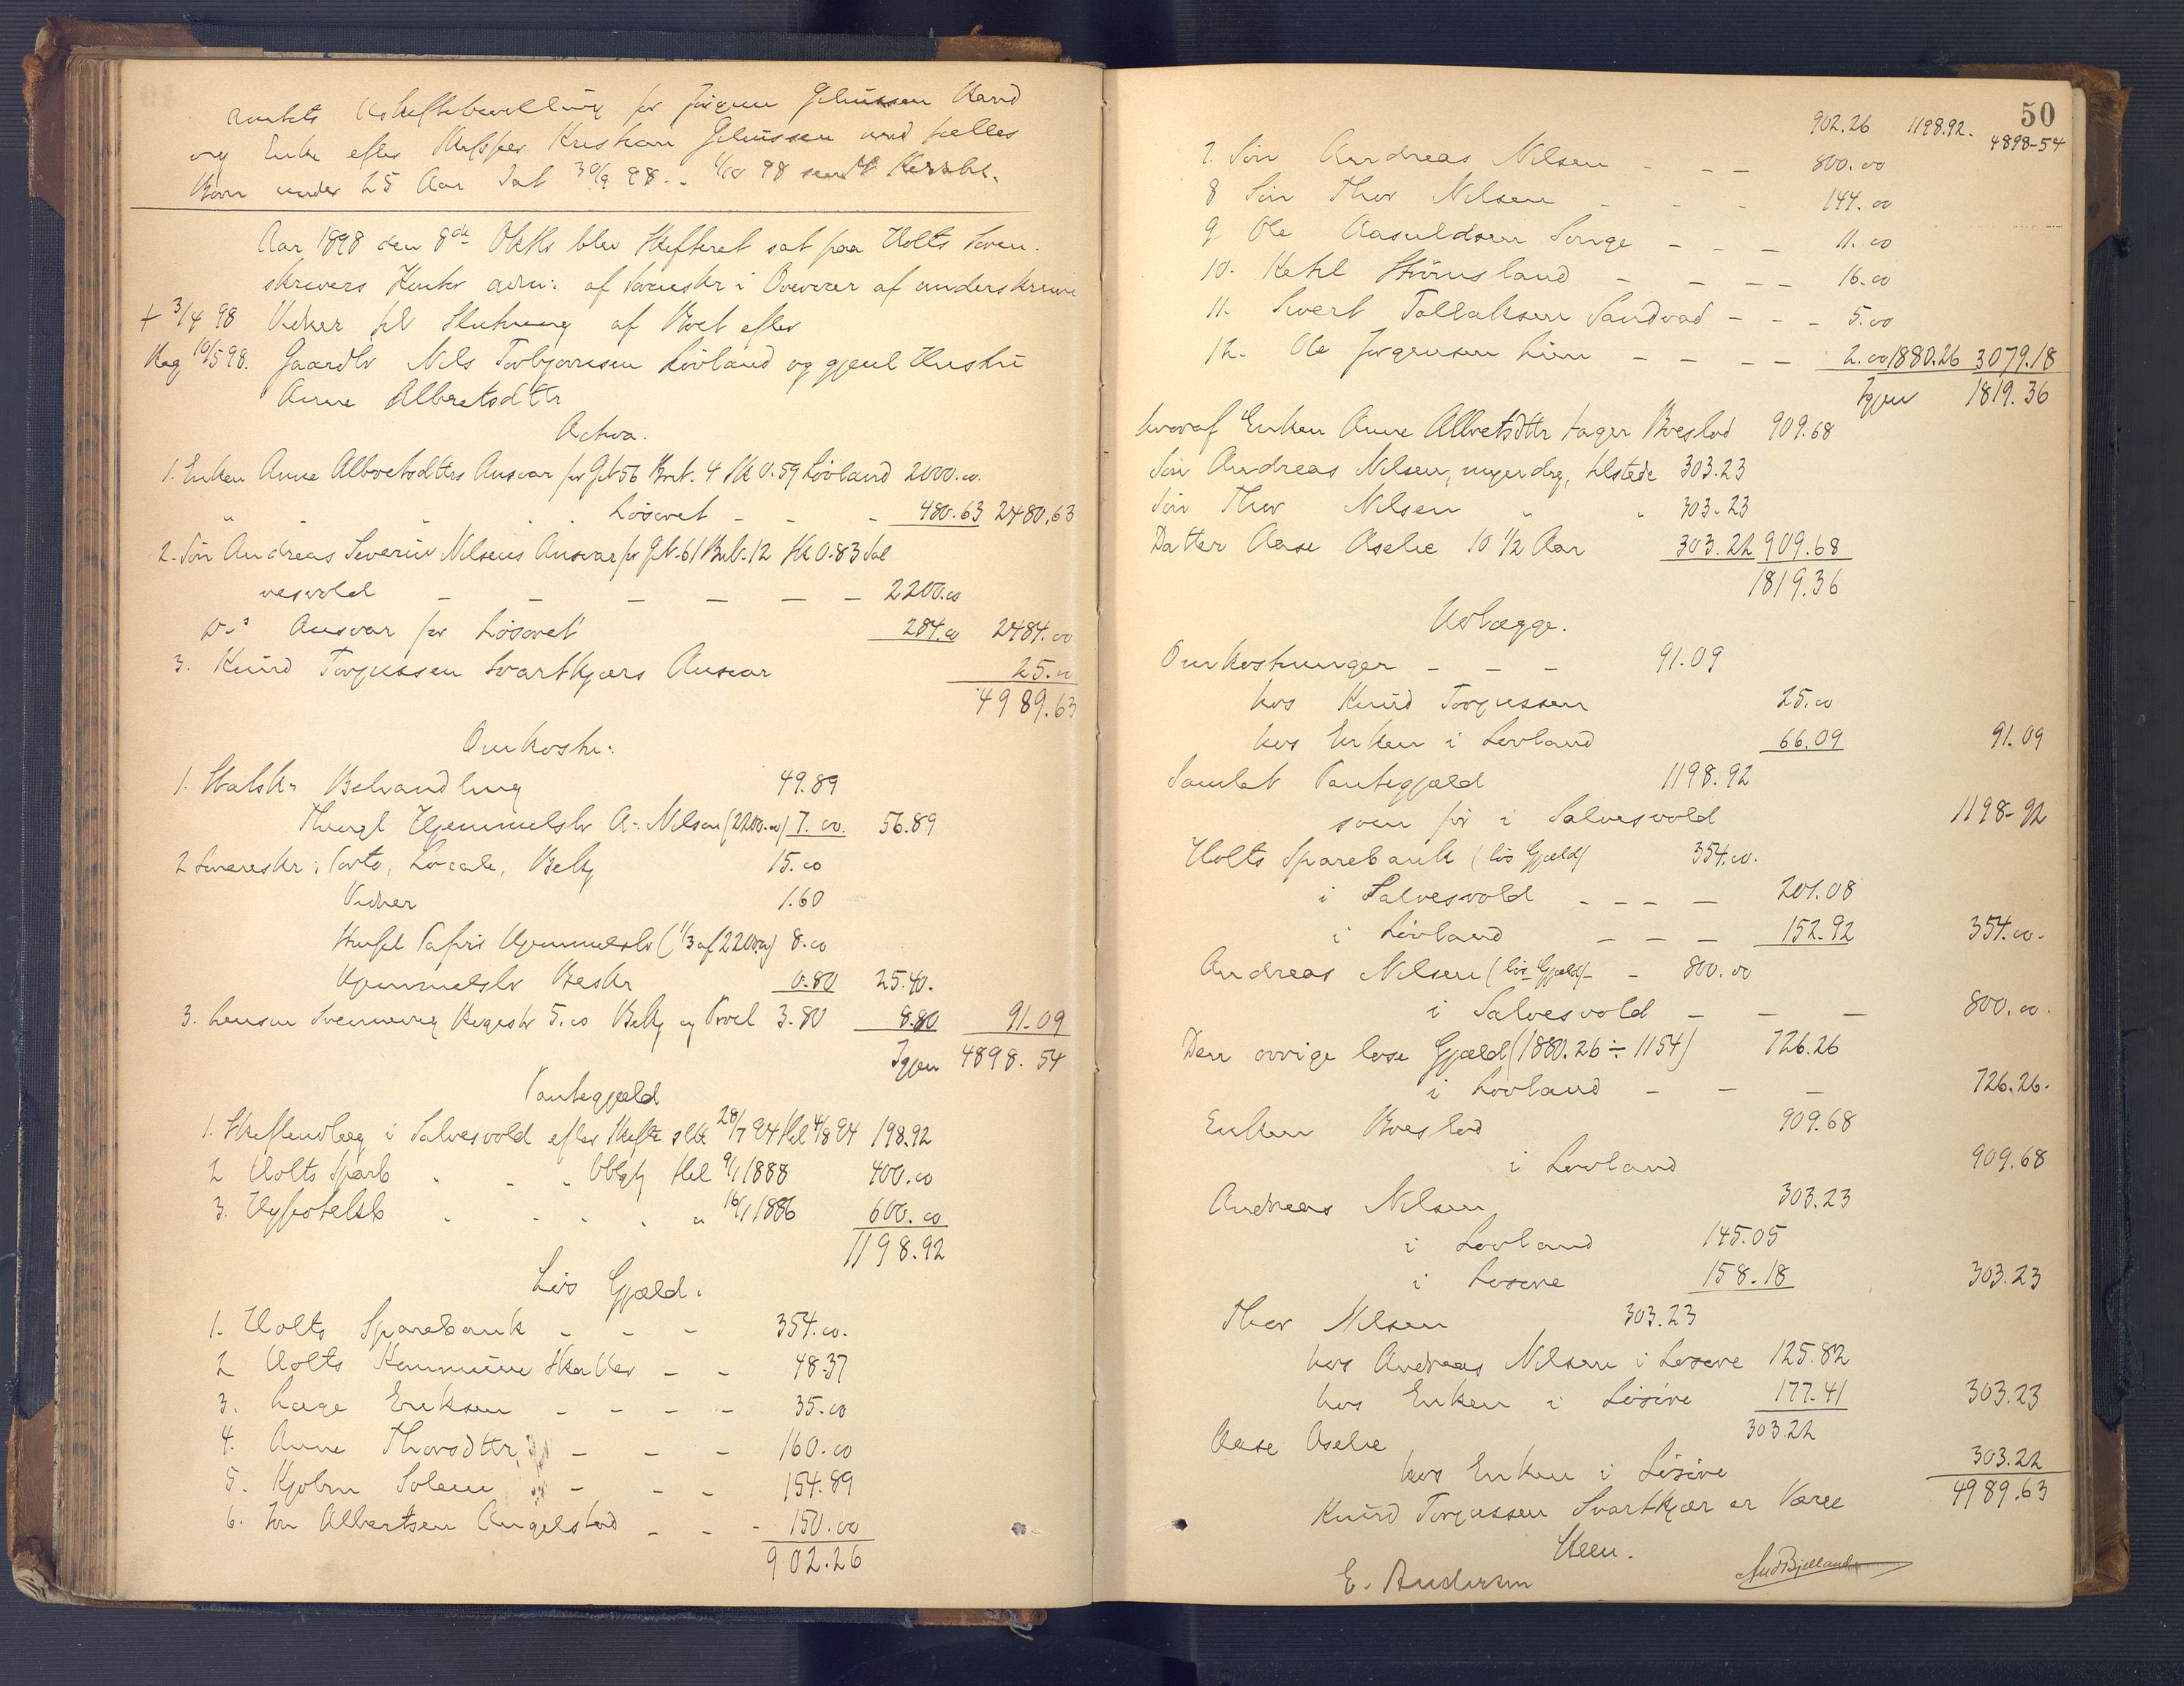 Amtets Uskiftebevilling for Jørgine Geliussen Sand
og Enke efter Skipper Kristian Geliussen med fælles
Børn under 25 Aar Dat 30/9 98. 1/10 98 sendt
Aar 1898 den 8de Oktbr blev Skifteret sat paa Holts Soren-
skrivers Kontor adm: af Soreskr i Overvær af underskrevne
+ 3/4 98 Vidner til Slutning af Boet efter
Reg 10/5 98. Gaardbr Nils Torbjørnsen Løvland og gjenl Hustru
Anne Albretsdttr
Activa.
1. Enken Anne Albretsdttrs Ansvar for Gt 56 Brt. 4 Sk 0.59 Løvland 2000.00.
" Løsøret - - - 480.63 2480.63
2. Søn Andreas Severin Nilsens Ansvar for Gt. 61 Brt. 12 Sk 0.83 Sal
vesvold - - - - - - 2200.00
Do Ansvar for Løsøret 284.00 2484.00
3. Knud Torjussen Svartkjærs Ansvar 25.00
4989.63
Omkostn:
1. Statsk: Behandling 49.89
Thingl Hjemmelsbr A. Nilsen (2200.00) 7.00. 56.89
2 Soreskr: Porto, Locale, Bekj 15.00
Vidner 1.60
Stempl Papir Hjemmelsbr (1/3 af 2200.00) 8.00
Hjemmelsbr Beskr 0.80 25.40.
3. Lensm Svennevig Regstr 5.00 Bekj og Procl 3.80 8.80 91.09
Igjen 4898.54
Pantegjæld
1. Skifteudlæg i Salvesvold efter Skifte slt 28/7 94 thl 4/8 94 198.92
2 Holts Sparb " " " Oblg thl 9/1 1888 400.00
3. Hypotekb " " " " " 16/1 1886 600.00
1198.92
Løs Gjæld.
1. Holts Sparebank - - - 354.00.
2 Holts Kommune Skatter - - 48.37
3. Læge Eriksen - - - - 35.00
4. Anne Thorsdttr, - - - 160.00
5. Kjøbm Solem - - - 154.89
6. Jon Albertsen Angelstad - - - 150.00
902.26
50
902.26 1198.92. 4898-54
7. Søn Andreas Nilsen - - - 800.00
8 Søn Thor Nilsen - - - 144.00
9. Ole Aasuldsen Songe - - - 11.00
10. Ketil Strømsland - - - - 16.00
11. Sivert Tallaksen Sandvad - - - 5.00
12. Ole Jorgensen Lien - - - - 2.00 1880.26 3079.18
Igjen 1819.36
hvoraf Enken Anne Albretsdttr tager Boeslod 909.68
Søn Andreas Nilsen, myndig, tilstede 303.23
Søn Thor Nilsen " " 303.23
Datter Aase Oselie 10 1/2 Aar 303.22 909.68
1819.36
Udlægge.
Omkostninger - - - 91.09
hos Knud Torjussen 25.00
hos Enken i Løvland 66.09 91.09
Samlet Pantegjæld 1198.92
som før i Salvesvold 1198-92
Holts Sparebank (løs Gjæld) 354.00.
i Salvesvold - - - - 201.08
i Løvland - - - 152.92 354.00.
Andreas Nilsen (løs Gjæld) - 800.00
i Salvesvold - - - 800.00.
Den øvrige løse Gjæld (1880.26 ÷ 1154) 726.26
i Løvland - - - 726.26.
Enken Boeslod 909.68
i Løvland 909.68
Andreas Nilsen 303.23
i Løvland 145.05
i Løsøre 158.18 303.23
Thor Nilsen 303.23
hos Andreas Nilsen i Løsøre 125.82
hos Enken i Løsøre 177.41 303.23
Aase Oselie 303.22
hos Enken i Løsøre 303.22
4989.63
Knud Torjussen Svartkjær er Værge
Steen.
E. Andersen And Bjelland